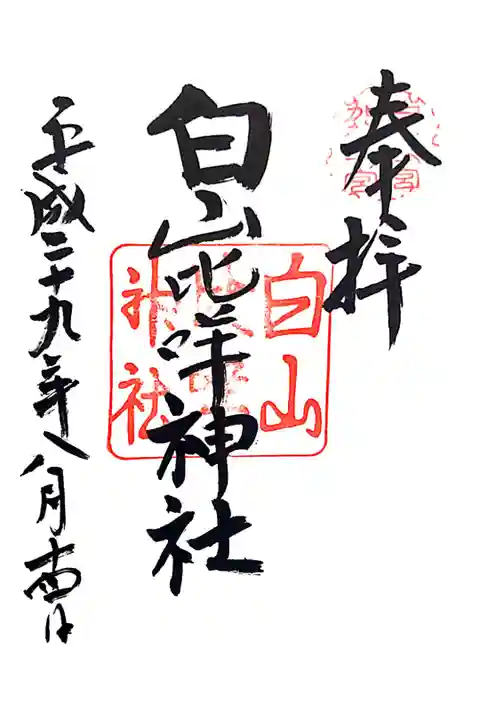 奉拝
白山比咩神社
平成二十九年八月十四日
白山
神社